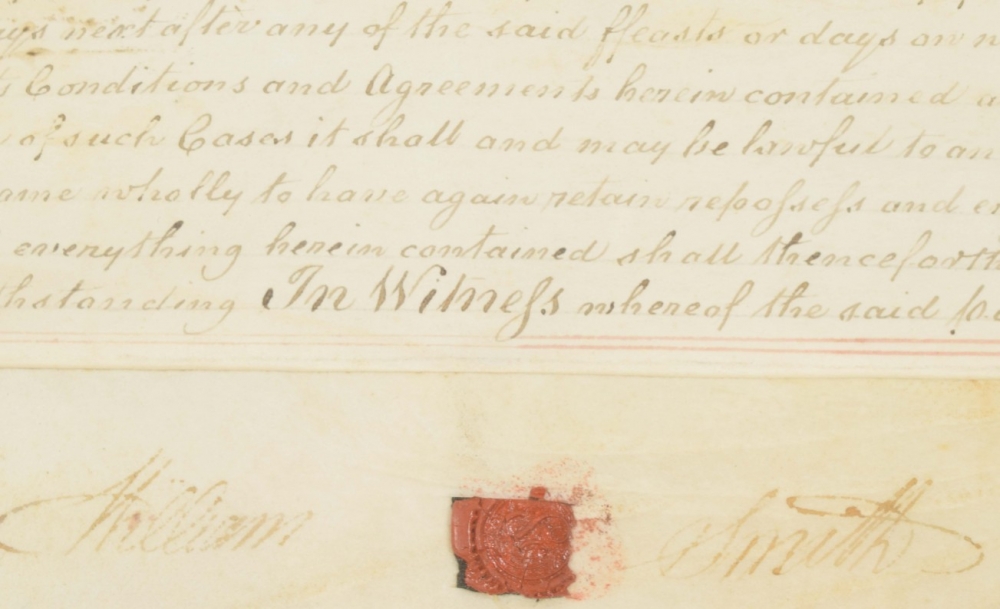 ays next after any of the said ffeasts or days on n
s Conditions and Agreements herein contained a
of such Cases it shall and may be lawful to an
ame wholly to have again retain repossess and en
everything herein contained shall thenceforth
hstanding In Witness whereof the said pa
William Smith